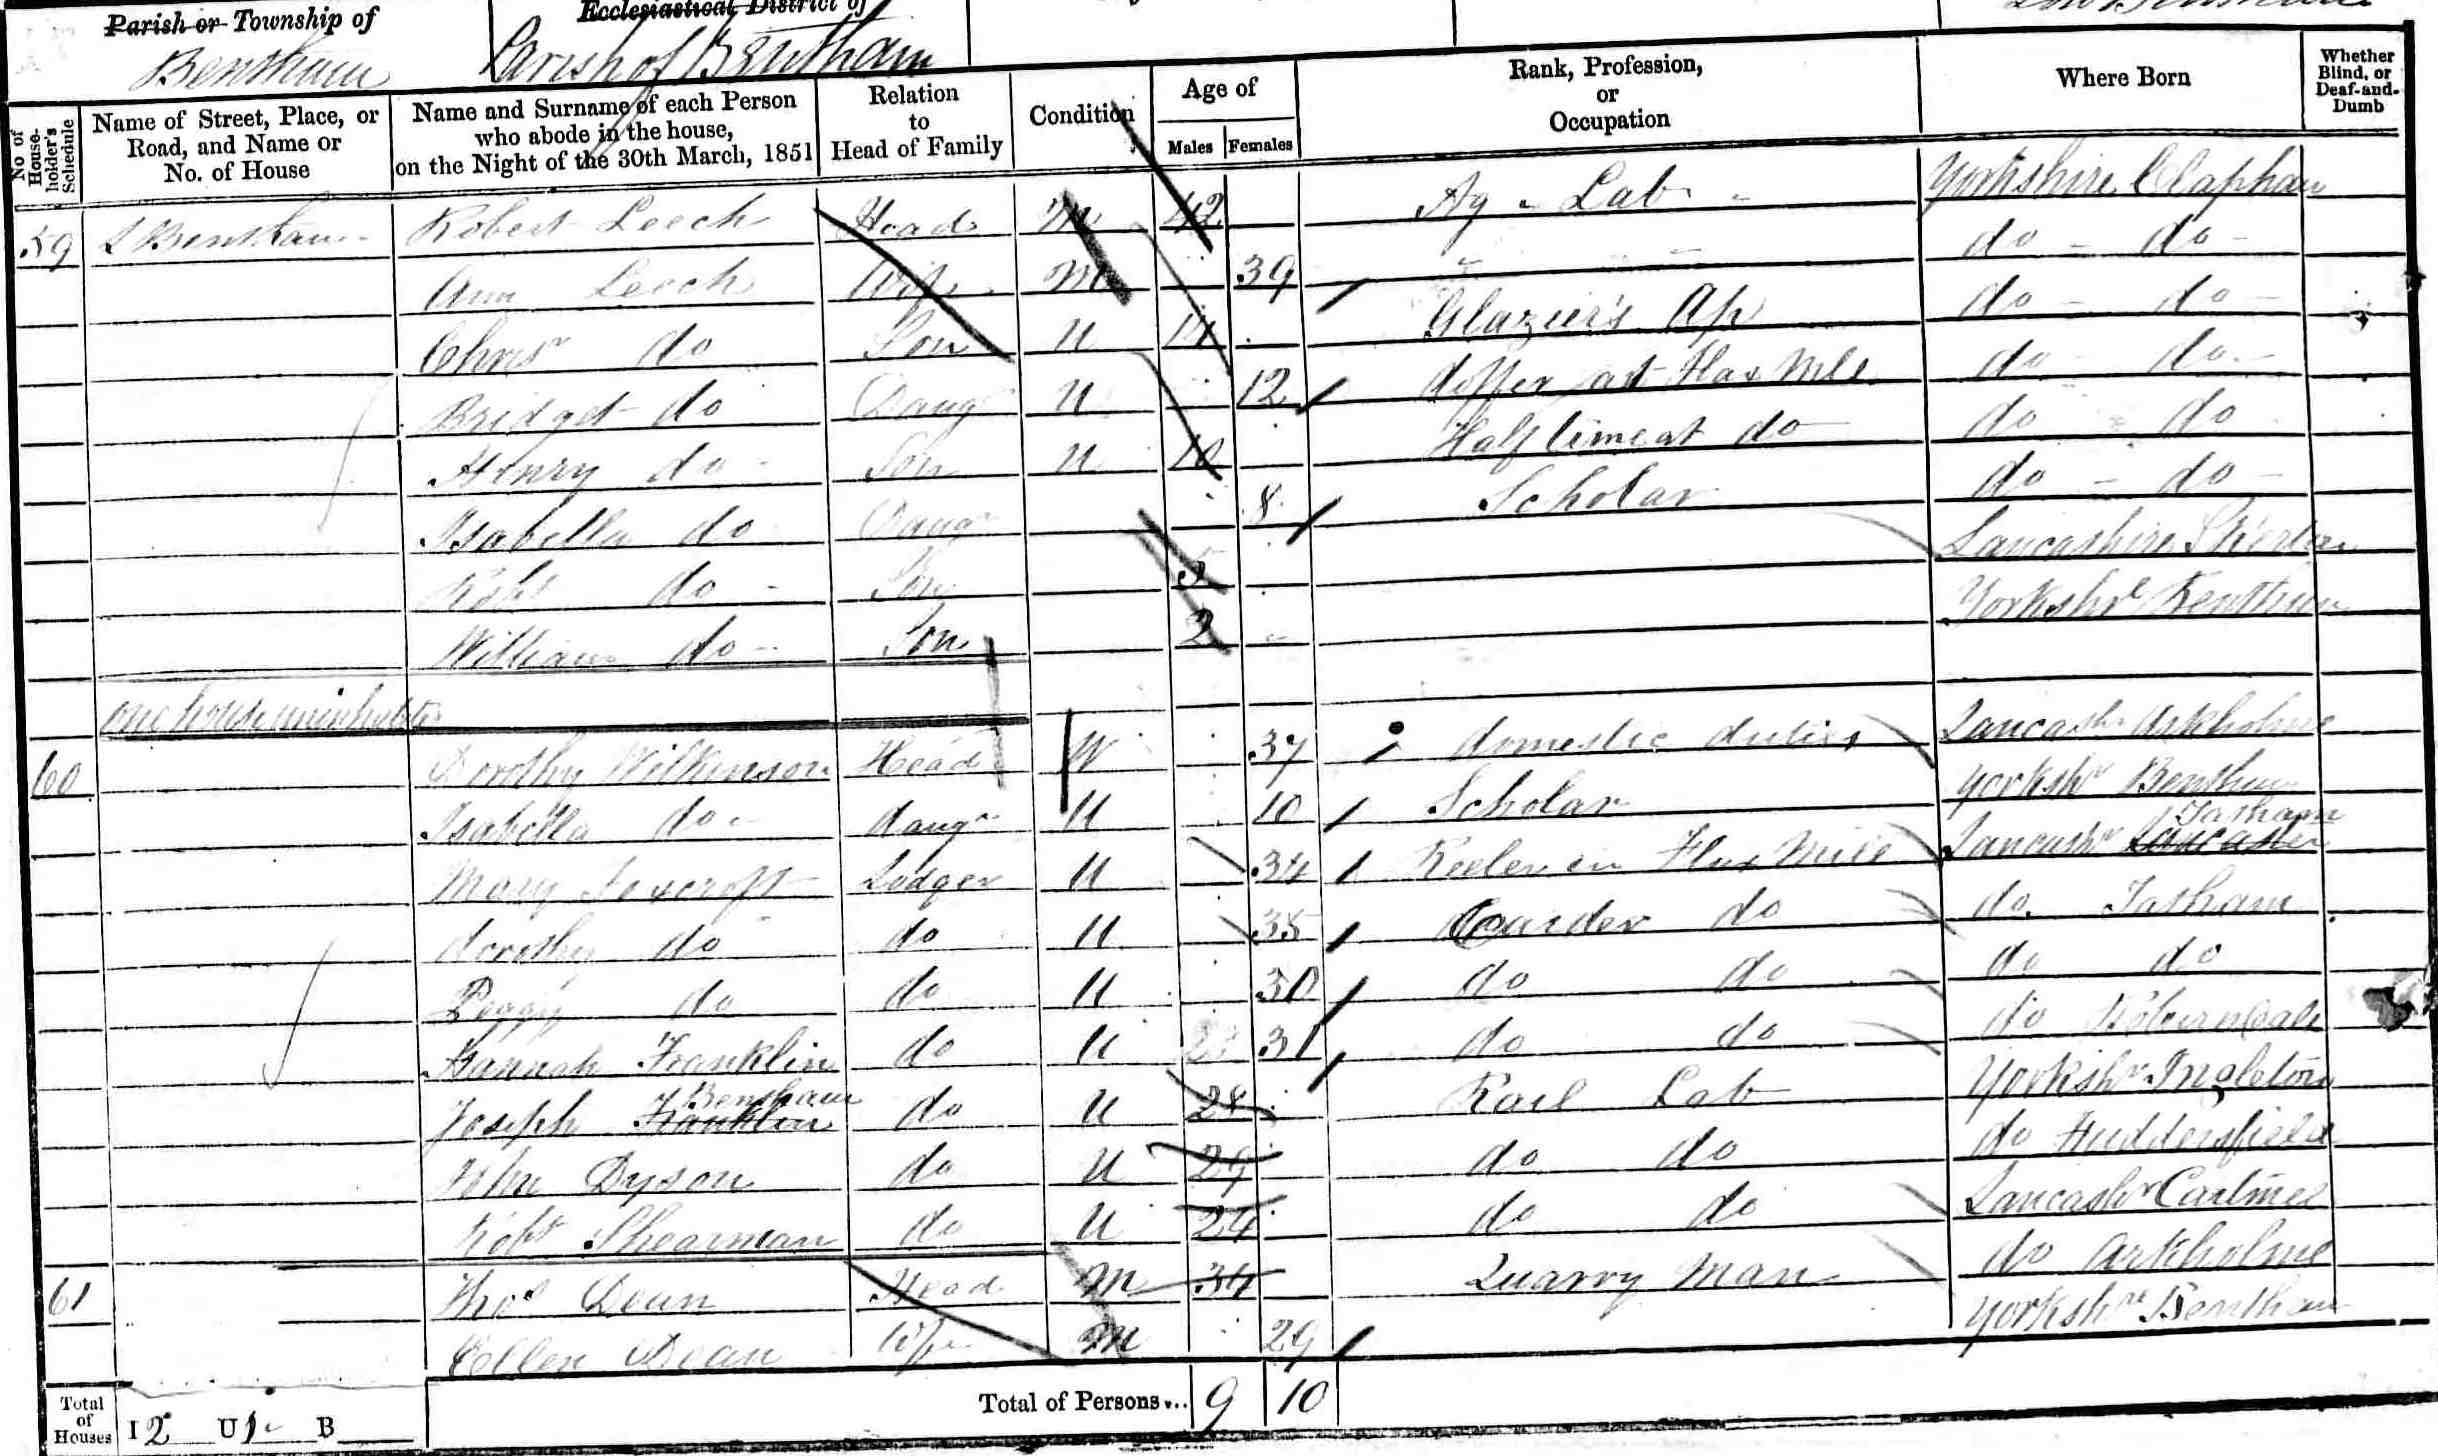 Parish or Township of
Bentham
Ecclesiastical District of
Parish of Bentham
No of House-holder's Schedule
Name of Street, Place, or Road, and Name or No. of House
Name and Surname of each Person who abode in the house, on the Night of the 30th March, 1851
Relation to Head of Family
Condition
Age of
Males Females
Rank, Profession, or Occupation
Where Born
Whether Blind, or Deaf-and-Dumb
59 L Bentham Robert Leech Head M 42 Ag Lab Yorkshire Clapham
Ann Leech Wife M 39 do do
Chrisr do Son U 14 Glazier's Ap do do
Bridget do Daugr U 12 doffer at Flax Mll do do
Henry do Son U 10 Half time at do do do
Isabella do Daugr 8 Scholar do do
Robt do Son 5 Lancashire Skerton
William do Son 2 Yorkshre Bentham
one house uninhabited
60 Dorothy Wilkinson Head W 37 domestic duties Lancashr Arkholme
Isabella do daugr U 10 Scholar Yorkshr Bentham
Mary Foxcroft Lodger U 34 Reeler in Flax Mill Lancashr Lancaster Tatham
dorothy do do U 35 Carder do do Tatham
Peggy do do U 30 do do do do
Hannah Franklin do U 31 do do do Roburndale
Joseph Franklin Bentham do U 28 Rail Lab Yorkshr Ingleton
John Dyson do U 29 do do do Huddersfield
Robt Shearman do U 24 do do Lancashr Cartmel
61 Thos Dean Head M 34 Quarry Man do Arkholme
Ellen Dean Wife M 29 Yorkshre Bentham
Total of Houses I 2 U 1 B
Total of Persons... 9 10